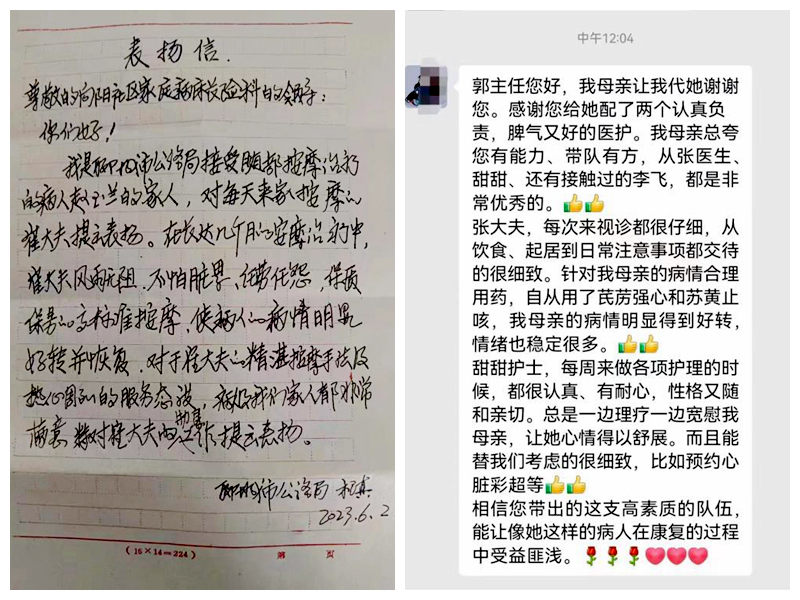 表扬信.
尊敬的向阳社区家庭病床长险科的领导:
你们好!
我是市公路局接受腹部按摩治疗
的病人赵玉兰的家人,对每天来家按摩的
崔大夫提出表扬。在长达几个月的按摩治疗中,
崔大夫风雨无阻、不怕脏累、任劳任怨、保质
保量的高标准按摩,使病人的病情明显
好转并恢复。对于崔大夫的精湛按摩手法及
热心周到的服务态度,病人及我们家人都非常
满意 特对崔大夫的工作提出表扬。
市公路局
2023.6.2
(16×14=224) 第 页
中午12:04
郭主任您好,我母亲让我代她谢谢
您。感谢您给她配了两个认真负
责,脾气又好的医护。我母亲总夸
您有能力、带队有方,从张医生、
甜甜、还有接触过的李飞,都是非
常优秀的。👍👍
张大夫,每次来视诊都很仔细,从
饮食、起居到日常注意事项都交待
的很细致。针对我母亲的病情合理
用药,自从用了芪苈强心和苏黄止
咳,我母亲的病情明显得到好转,
情绪也稳定很多。👍👍
甜甜护士,每周来做各项护理的时
候,都很认真、有耐心,性格又随
和亲切。总是一边理疗一边宽慰我
母亲,让她心情得以舒展。而且能
替我们考虑的很细致,比如预约心
脏彩超等👍👍
相信您带出的这支高素质的队伍,
能让像她这样的病人在康复的过程
中受益匪浅。🌹🌹🌹❤❤❤